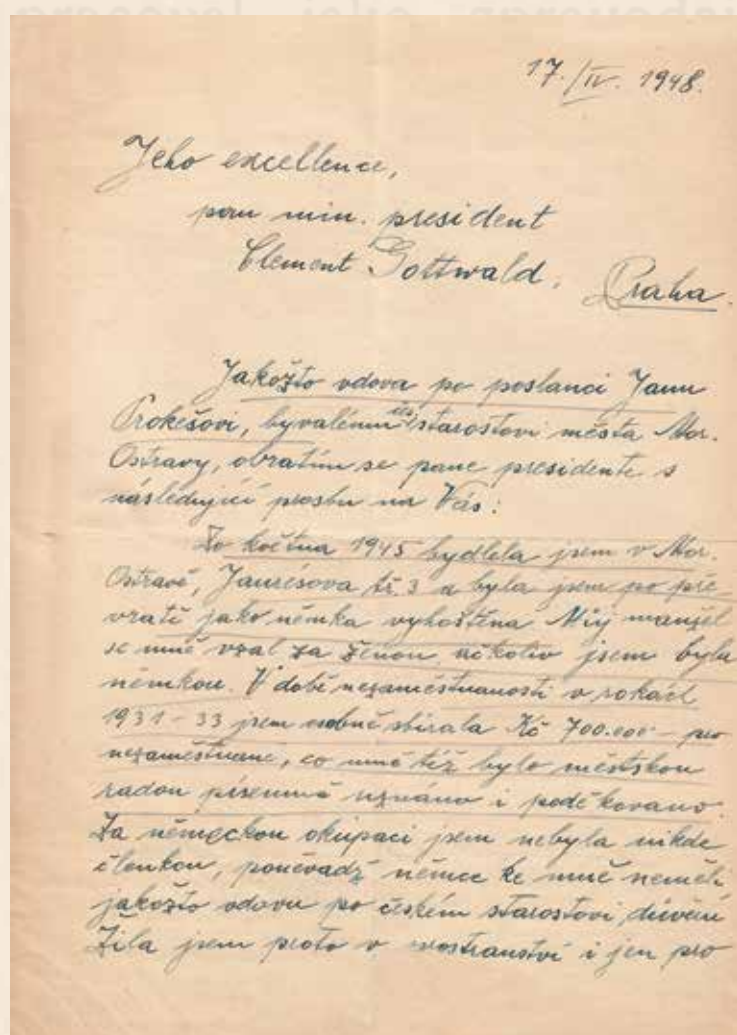 17./IV. 1948.
Jeho excellence,
pan min. president
Clement Gottwald,
Praha.
Jakožto vdova po poslanci Janu
Prokešovi, bývalému čes. starostovi města Mor.
Ostravy, obratím se pane presidente s
následující prosbu na Vás:
Do května 1945 bydlela jsem v Mor.
Ostravě, Jaurésova tř. 3 a byla jsem po pře-
vratě jako němka vyhoštěna Můj manžel
se mně vzal za ženou, ačkoliv jsem byla
němkou. V době nezaměstnanosti v rokách
1931-33 jsem osobně sbírala Kč 700.000 - pro
nezaměstnané, co mně též bylo městskou
radou písemně uznáno i poděkováno.
Za německou okupaci jsem nebyla nikde
členkou, poněvadž němce ke mně neměli
jakožto vdovu po českém starostovi, důvěru
Žila jsem proto v ústranství i jen pro